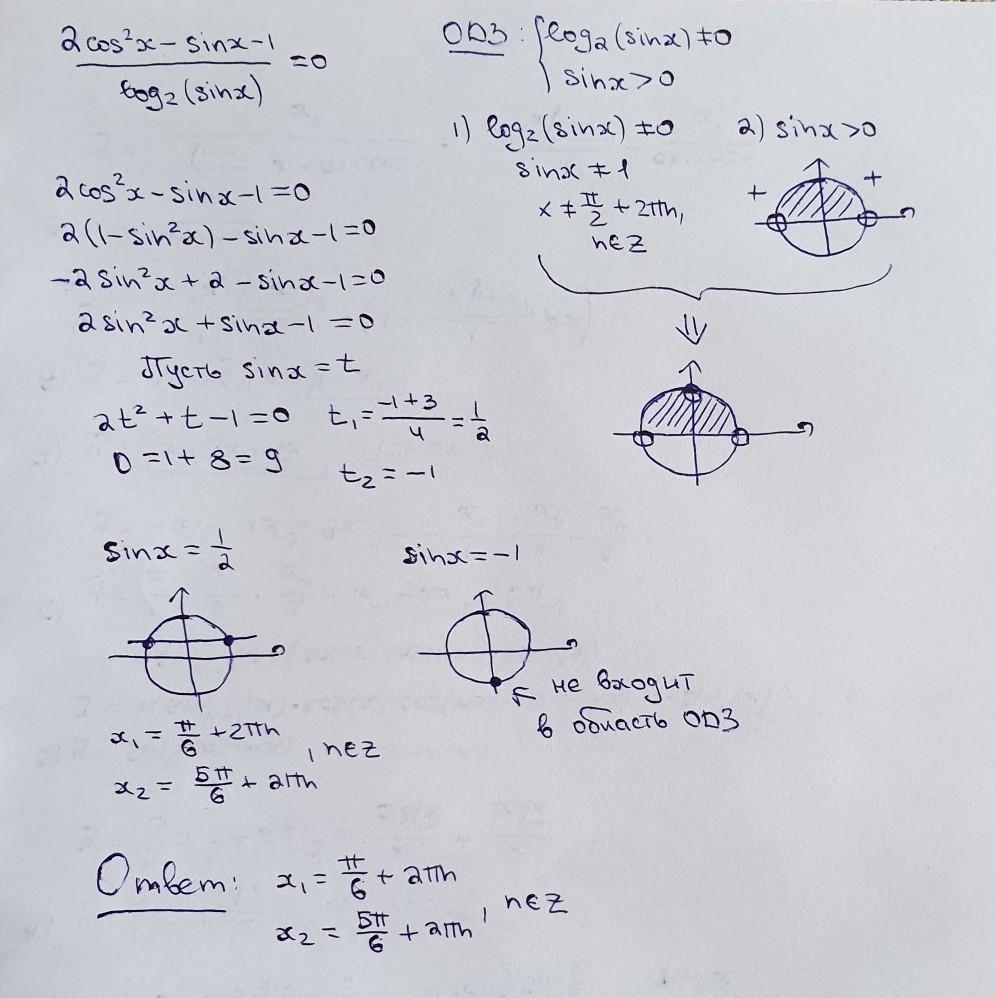 2cos²x − sinx − 1
―――――――――― = 0
log₂(sinx)
ОДЗ: { log₂(sinx) ≠ 0
sinx > 0
1) log₂(sinx) ≠ 0
sinx ≠ 1
x ≠ π/2 + 2πn,
n∈Z
2) sinx > 0
+ +
⇓
2cos²x − sinx − 1 = 0
2(1 − sin²x) − sinx − 1 = 0
−2sin²x + 2 − sinx − 1 = 0
2sin²x + sinx − 1 = 0
Пусть sinx = t
2t² + t − 1 = 0
D = 1 + 8 = 9
t₁ = (−1+3)/4 = 1/2
t₂ = −1
sinx = 1/2
x₁ = π/6 + 2πn
x₂ = 5π/6 + 2πn , n∈Z
sinx = −1
не входит
в область ОДЗ
Ответ: x₁ = π/6 + 2πn
x₂ = 5π/6 + 2πn , n∈Z